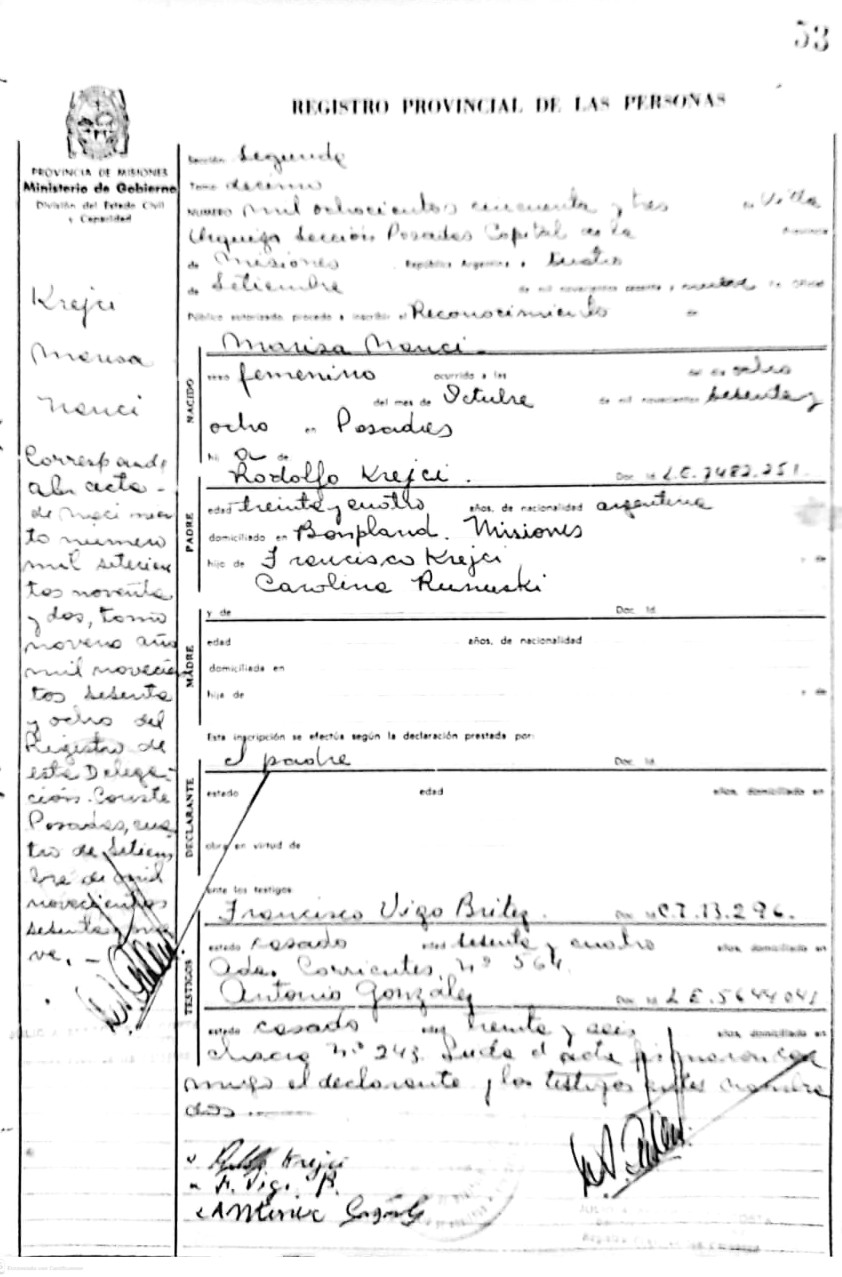 53
REGISTRO PROVINCIAL DE LAS PERSONAS
PROVINCIA DE MISIONES
Ministerio de Gobierno
División del Estado Civil
y Capacidad
Sección Segunda
Tomo decimo
NUMERO mil ochocientos cincuenta y tres en Villa
Urquiza Sección Posadas Capital de la Provincia
de Misiones República Argentina a cuatro
de Setiembre de mil novecientos sesenta y nueve El Oficial
Público autorizado procedo a inscribir el Reconocimiento de
Krejci
Marisa
Nanci
Corresponde
al acta
de Nacimien
to numero
mil setecien
tos noventa
y dos, tomo
noveno año
mil novecien
tos sesenta
y ocho del
Registro de
esta Delega-
ción. Conste
Posadas, cua
tro de Setiem
bre de mil
novecientos
sesenta y nue
ve. -
NACIDO
Marisa Nanci -
sexo femenino ocurrido a las del día ocho
del mes de Octubre de mil novecientos sesenta y
ocho en Posadas
hij a de
PADRE
Rodolfo Krejci. Doc. Id. L.E. 7482.251.
edad treinta y cuatro años, de nacionalidad argentina
domiciliado en Bonpland. Misiones
hijo de Francisco Krejci y de
Carolina
MADRE
y de Doc. Id.
edad años, de nacionalidad
domiciliada en
hija de y de
Esta inscripción se efectúa según la declaración prestada por:
DECLARANTE
el padre Doc. Id.
estado edad años, domiciliado en
obra en virtud de
ante los testigos
TESTIGOS
Francisco Vigo Britez. Doc. Id. C.I. 13.296.
estado casado edad sesenta y cuatro años, domiciliado en
Avda. Corrientes. nº 564
Antonio González Doc. Id. L.E. 5644041
estado casado edad treinta y seis años, domiciliado en
chacra Nº 243. Leida el acta firmaron con
migo el declarante y los testigos antes nombra
dos
Rodolfo Krejci
F. Vigo B.
Antonio González